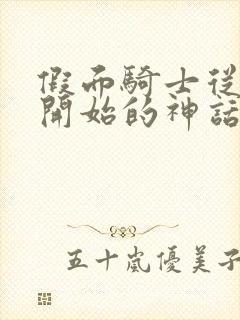 假而騎士從
開始的神話
五十嵐優美子